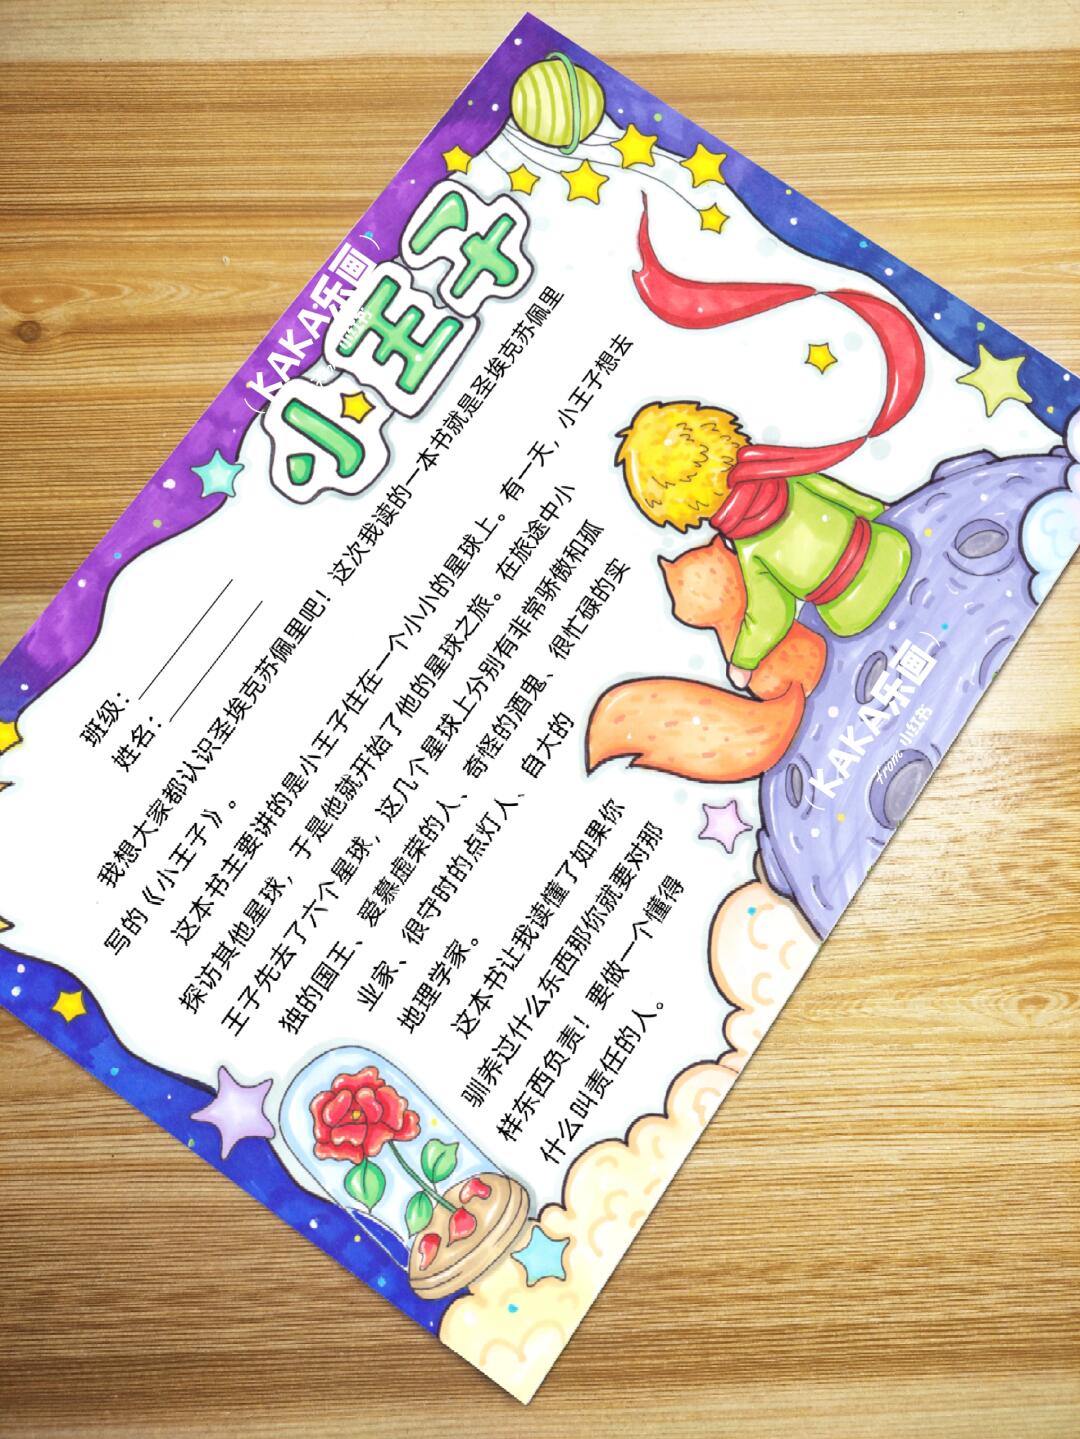 小王子
(KAKA乐画)
小红书
班级:
姓名:
我想大家都认识圣埃克苏佩里吧!这次我读的一本书就是圣埃克苏佩里
写的《小王子》。
这本书主要讲的是小王子住在一个小小的星球上。有一天,小王子想去
探访其他星球,于是他就开始了他的星球之旅。在旅途中小
王子先去了六个星球,这几个星球上分别有非常骄傲和孤
独的国王、爱慕虚荣的人、奇怪的酒鬼、很忙碌的实
业家、很守时的点灯人、自大的
地理学家。
这本书让我读懂了如果你
驯养过什么东西那你就要对那
样东西负责!要做一个懂得
什么叫责任的人。
(KAKA乐画)
from 小红书